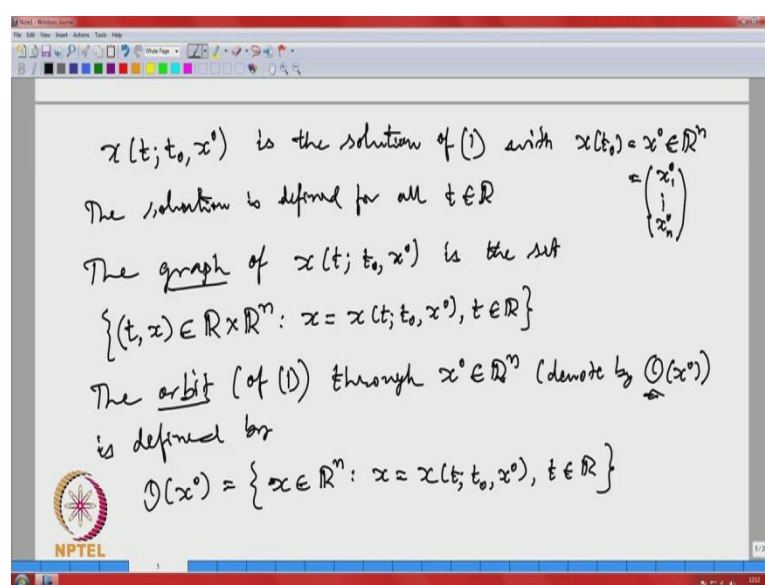 Note1 - Windows Journal
File Edit View Insert Actions Tools Help
Whole Page
B I
x(t; t₀, x⁰) is the solution of (1) with x(t₀) = x⁰ ∈ ℝⁿ
= (x₁⁰ ⋮ xₙ⁰)
The solution is defined for all t ∈ ℝ
The graph of x(t; t₀, x⁰) is the set
{(t, x) ∈ ℝ × ℝⁿ : x = x(t; t₀, x⁰), t ∈ ℝ}
The orbit (of (1)) through x⁰ ∈ ℝⁿ (denote by O(x⁰))
is defined by
O(x⁰) = { x ∈ ℝⁿ : x = x(t; t₀, x⁰), t ∈ ℝ }
NPTEL
5